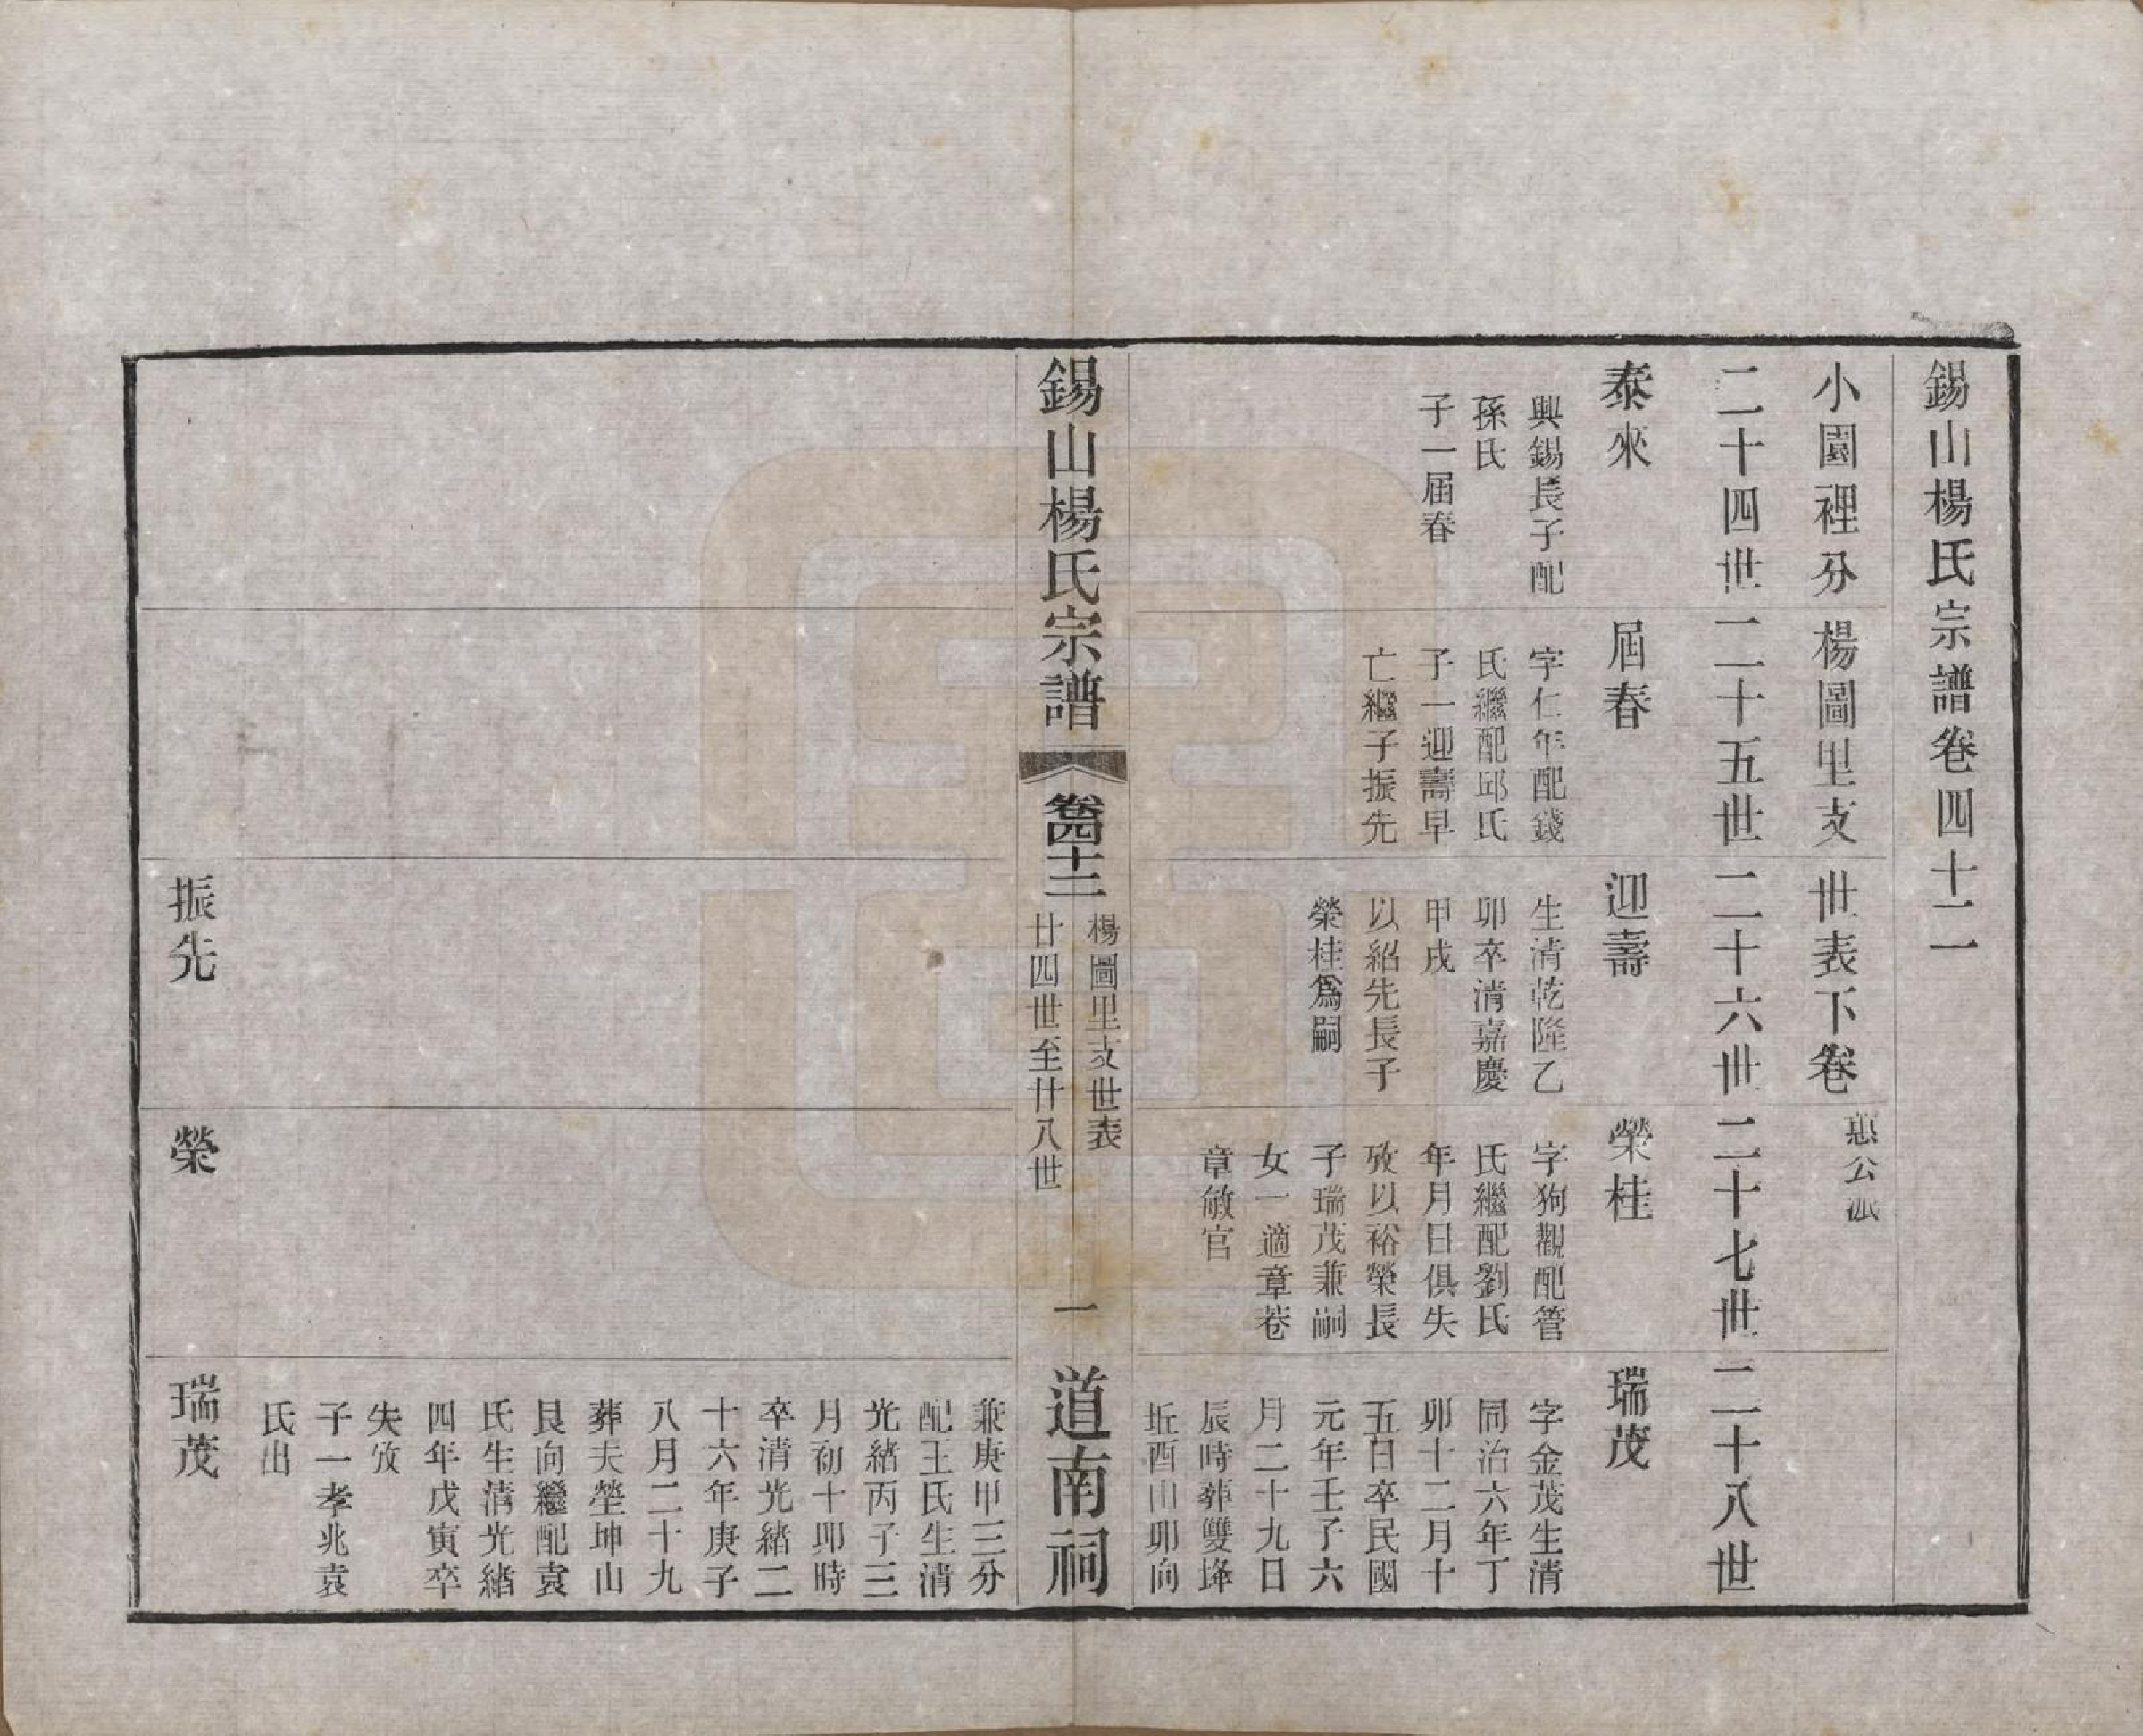 錫山楊氏宗譜卷四十二
小園裡分楊圖里支世表下卷
惠公派
二十四世
二十五世
二十六世
二十七世
二十八世
泰來
興錫長子配
孫氏
子一屆春
屆春
字仁年配錢
氏繼配邱氏
子一迎壽早
亡繼子振先
迎壽
生清乾隆乙
卯卒清嘉慶
甲戌
以紹先長子
榮桂爲嗣
榮桂
字狗觀配管
氏繼配劉氏
年月日俱失
攷以裕榮長
子瑞茂兼嗣
女一適章巷
章敏官
瑞茂
字金茂生清
同治六年丁
卯十二月十
五日卒民國
元年壬子六
月二十九日
辰時葬雙墶
坵酉山卯向
錫山楊氏宗譜
卷四十二
楊圖里支世表
廿四世至廿八世
一
道南祠
兼庚甲三分
配王氏生清
光緒丙子三
月初十卯時
卒清光緒二
十六年庚子
八月二十九
葬夫塋坤山
艮向繼配袁
氏生清光緒
四年戊寅卒
失攷
子一孝兆袁
氏出
振先
榮
瑞茂